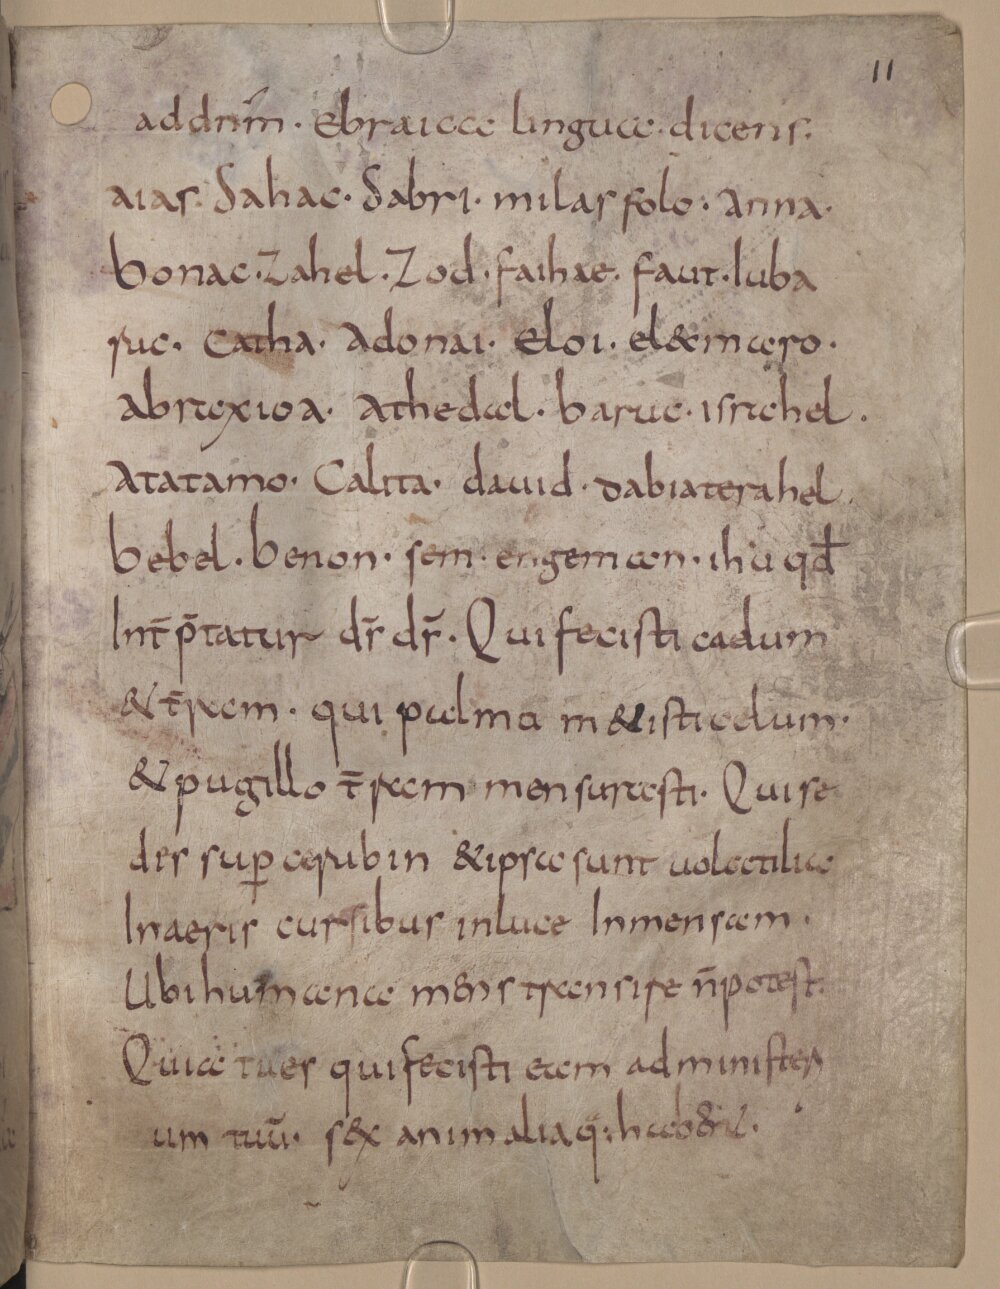 11
ad dnm̄. Ebraicae linguae. dicens.
aias. dahac. dabri. milas folo. anna.
bonac. Zahel. Zod. faihae. faut. luba
suc. catha. adonai. Eloi. el&maro.
abraxioa. athedael. baruc. israhel.
atatamo. Caltta. dauid. dabiaterahel.
bebel. benon. sem. engeman. ihū qd̄
Int̄p̄tatur dr̄ dr̄. Qui fecisti caelum
& t̄ram. qui palma m&isti celum.
& pugillo t̄ram mensurasti. Qui se
des sup̲ cerubin & ipsa sunt uolatilia
In aeris cursibus in luce Inmensam.
Ubi humana mens transire n̄ potest.
Quia tu es qui fecisti eam ad minister
um tuū. sex animalia q̄. hab&.